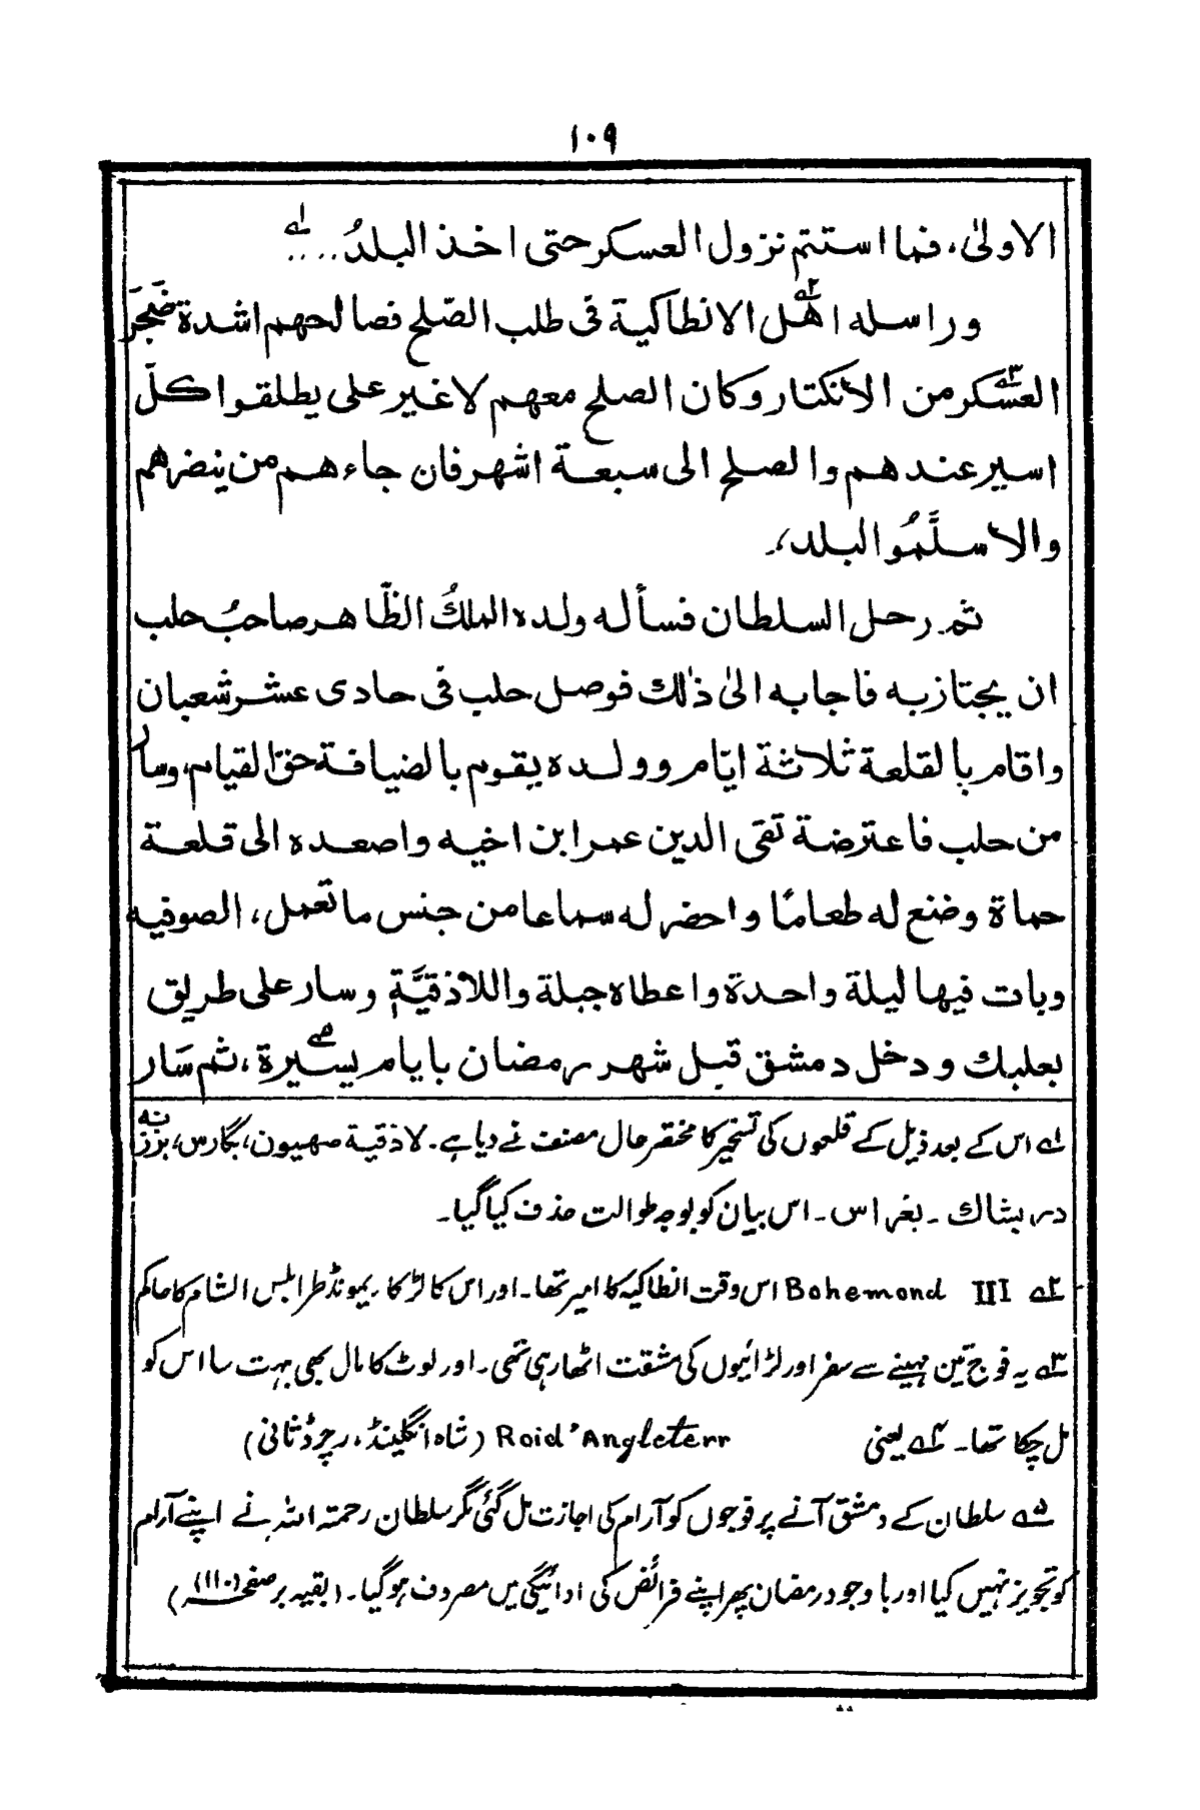 ١٠٩
الاولىٰ، فما استتم نزول العسكر حتى اخذ البلدُ .... ؎۱
وراسله اهل؎۲ الانطاكية فى طلب الصّلح فصالحهم اشدة ضَجَرَ
العسكر؎۳ من الانكتار وكان الصلح معهم لا غير على يطلقوا كلّ
اسير عندهم والصلح الى سبعة اشهر فان جاءهم من ينضرهم
والا سلَّمُوا البلد،
ثم رحل السلطان فسأله ولده الملكُ الظّاهر صاحبُ حلب
ان يجتازبه فاجابه الىٰ ذٰلك فوصل حلب فى حادى عشر شعبان
واقام بالقلعة ثلاثة ايّام وولده يقوم بالضيافة حقّ القيام، وسار
من حلب فاعترضة تقى الدين عمر ابن اخيه واصعده الى قلعة
حماة وضنع له طعامًا واحضر له سماعا من جنس ما تعمل، الصوفيه
وبات فيها ليلة واحدة واعطاه جبلة واللاذقيَّة وسار على طريق
بعلبك ودخل دمشق قبل شهر رمضان بايام يسيرة؎۵، ثم سَار
؎۱ اس کے بعد ذیل کے قلعوں کی تسخیر کا مختصر حال مصنف نے دیا ہے۔ لاذقية صهیون، بکارس، برزیہ
دربشاك ۔ بغراس ۔ اس بیان کو بوجہ طوالت حذف کیا گیا۔
؎۲ Bohemond III اس وقت انطاکیہ کا امیر تھا۔ اور اس کا لڑکا ریمونڈ طرابلس الشام کا حاکم
؎۳ یہ فوج تین مہینے سے سفر اور لڑائیوں کی مشقت اٹھا رہی تھی۔ اور لوٹ کا مال بھی بہت سا اس کو
مل چکا تھا۔ ؎۴ یعنی Roid'Angleterr (شاہ انگلینڈ، رچرڈ ثانی)
؎۵ سلطان کے دمشق آنے پر فوجوں کو آرام کی اجازت مل گئی مگر سلطان رحمتہ اللہ نے اپنے آرام
کو تجویز نہیں کیا اور باوجود رمضان پھر اپنے فرائض کی ادائیگی میں مصروف ہو گیا۔ (بقیہ بر صفحہ (۱۱۰))